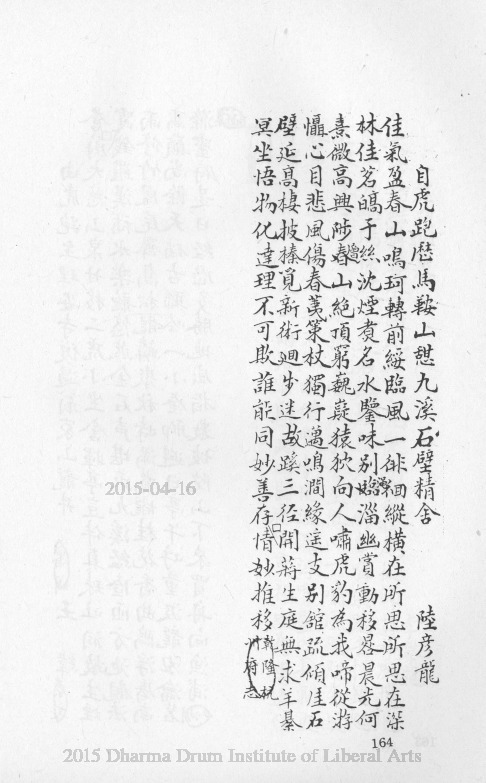 自虎跑歷馬鞍山憇九溪石壁精舍 陸彥龍
佳氣盈春山鳴珂轉前綏臨風一徘徊縱橫在所思所思在深
林佳茗皜于絲沈煙煑名水鑒味别臨淄幽賞動移晷晨光何
熹微高興陟春山絕頂窮巍嶷猿狖向人嘯虎豹為我啼從游
懾心目悲風傷春荑策杖獨行邁鳴澗緣逕支别館疏傾崖石
壁延高棲披榛覓新術廻步迷故蹊三径開蔣生庭無求羊綦
冥坐悟物化達理不可欺誰能同妙善存情妙推移
乾隆杭
州府志
164
2015-04-16
2015 Dharma Drum Institute of Liberal Arts